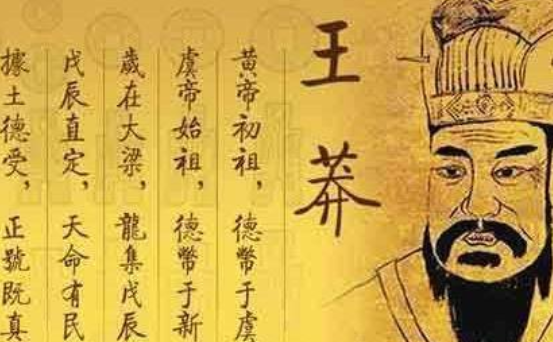 王莽
黃帝初祖，德幣于虞
虞帝始祖，德幣于新
歲在大梁，龍集戊辰
戊辰直定，天命有民
據土德受，正號既真